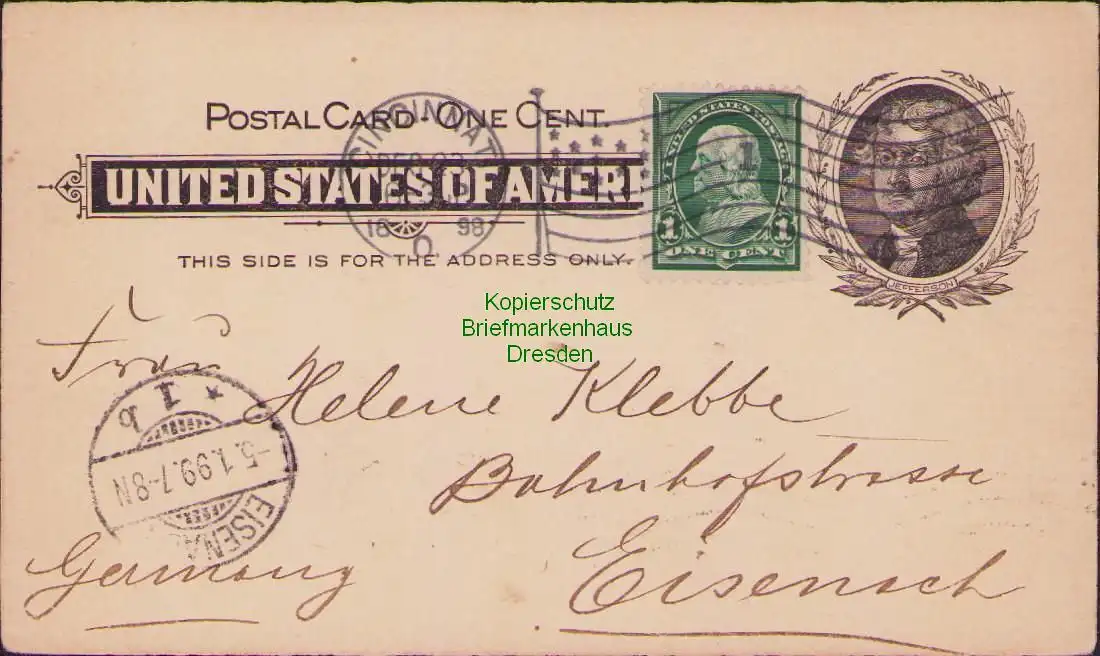 POSTAL CARD - ONE CENT.
UNITED STATES OF AMERI
THIS SIDE IS FOR THE ADDRESS ONLY.
CINCINNATI
18 98
O.
UNITED STATES POSTAGE
1 1
ONE CENT
JEFFERSON
Kopierschutz
Briefmarkenhaus
Dresden
Frau
Helene Klebbe
Bahnhofstrasse
Eisenach
Germany
* 1 b
-5.1.99.7-8N
EISENA